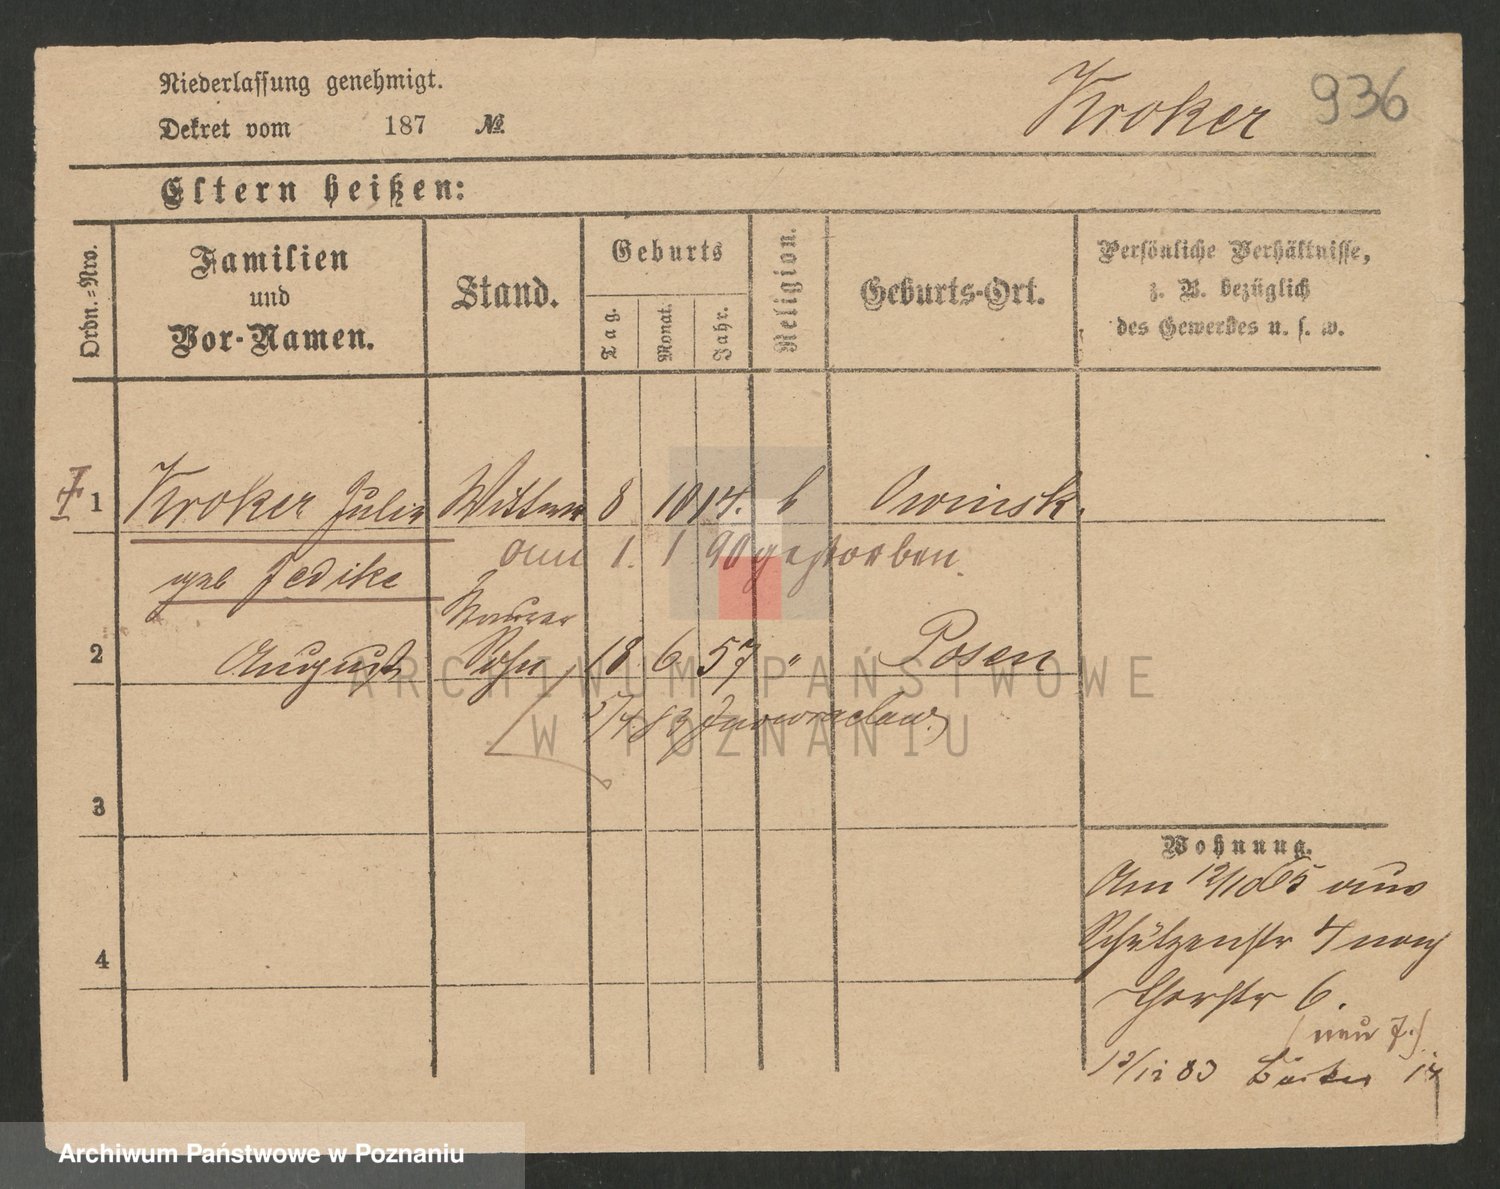 Niederlassung genehmigt.
Dekret vom 187 №
Kroker 936
Eltern heißen:
Ordn.=Nro.
Familien
und
Vor-Namen.
Stand.
Geburts
Tag.
Monat.
Jahr.
Religion.
Geburts-Ort.
Persönliche Verhältnisse,
z. B. bezüglich
des Gewerbes u. s. w.
1 Kroker Julie Wittwe 8 10 14. k Owinsk.
am 1. 1 90 gestorben.
geb Jedike
Maurer
2 August Sohn 18 6 57 " Posen
2/4. 83 Inowraclaw.
3
4
Wohnung.
Am 12/10 65 aus
Schützenstr 4 nach
Thorstr 6.
(neu 7.)
12/12 83 Bäcker 14
ARCHIWUM PAŃSTWOWE
W POZNANIU
Archiwum Państwowe w Poznaniu